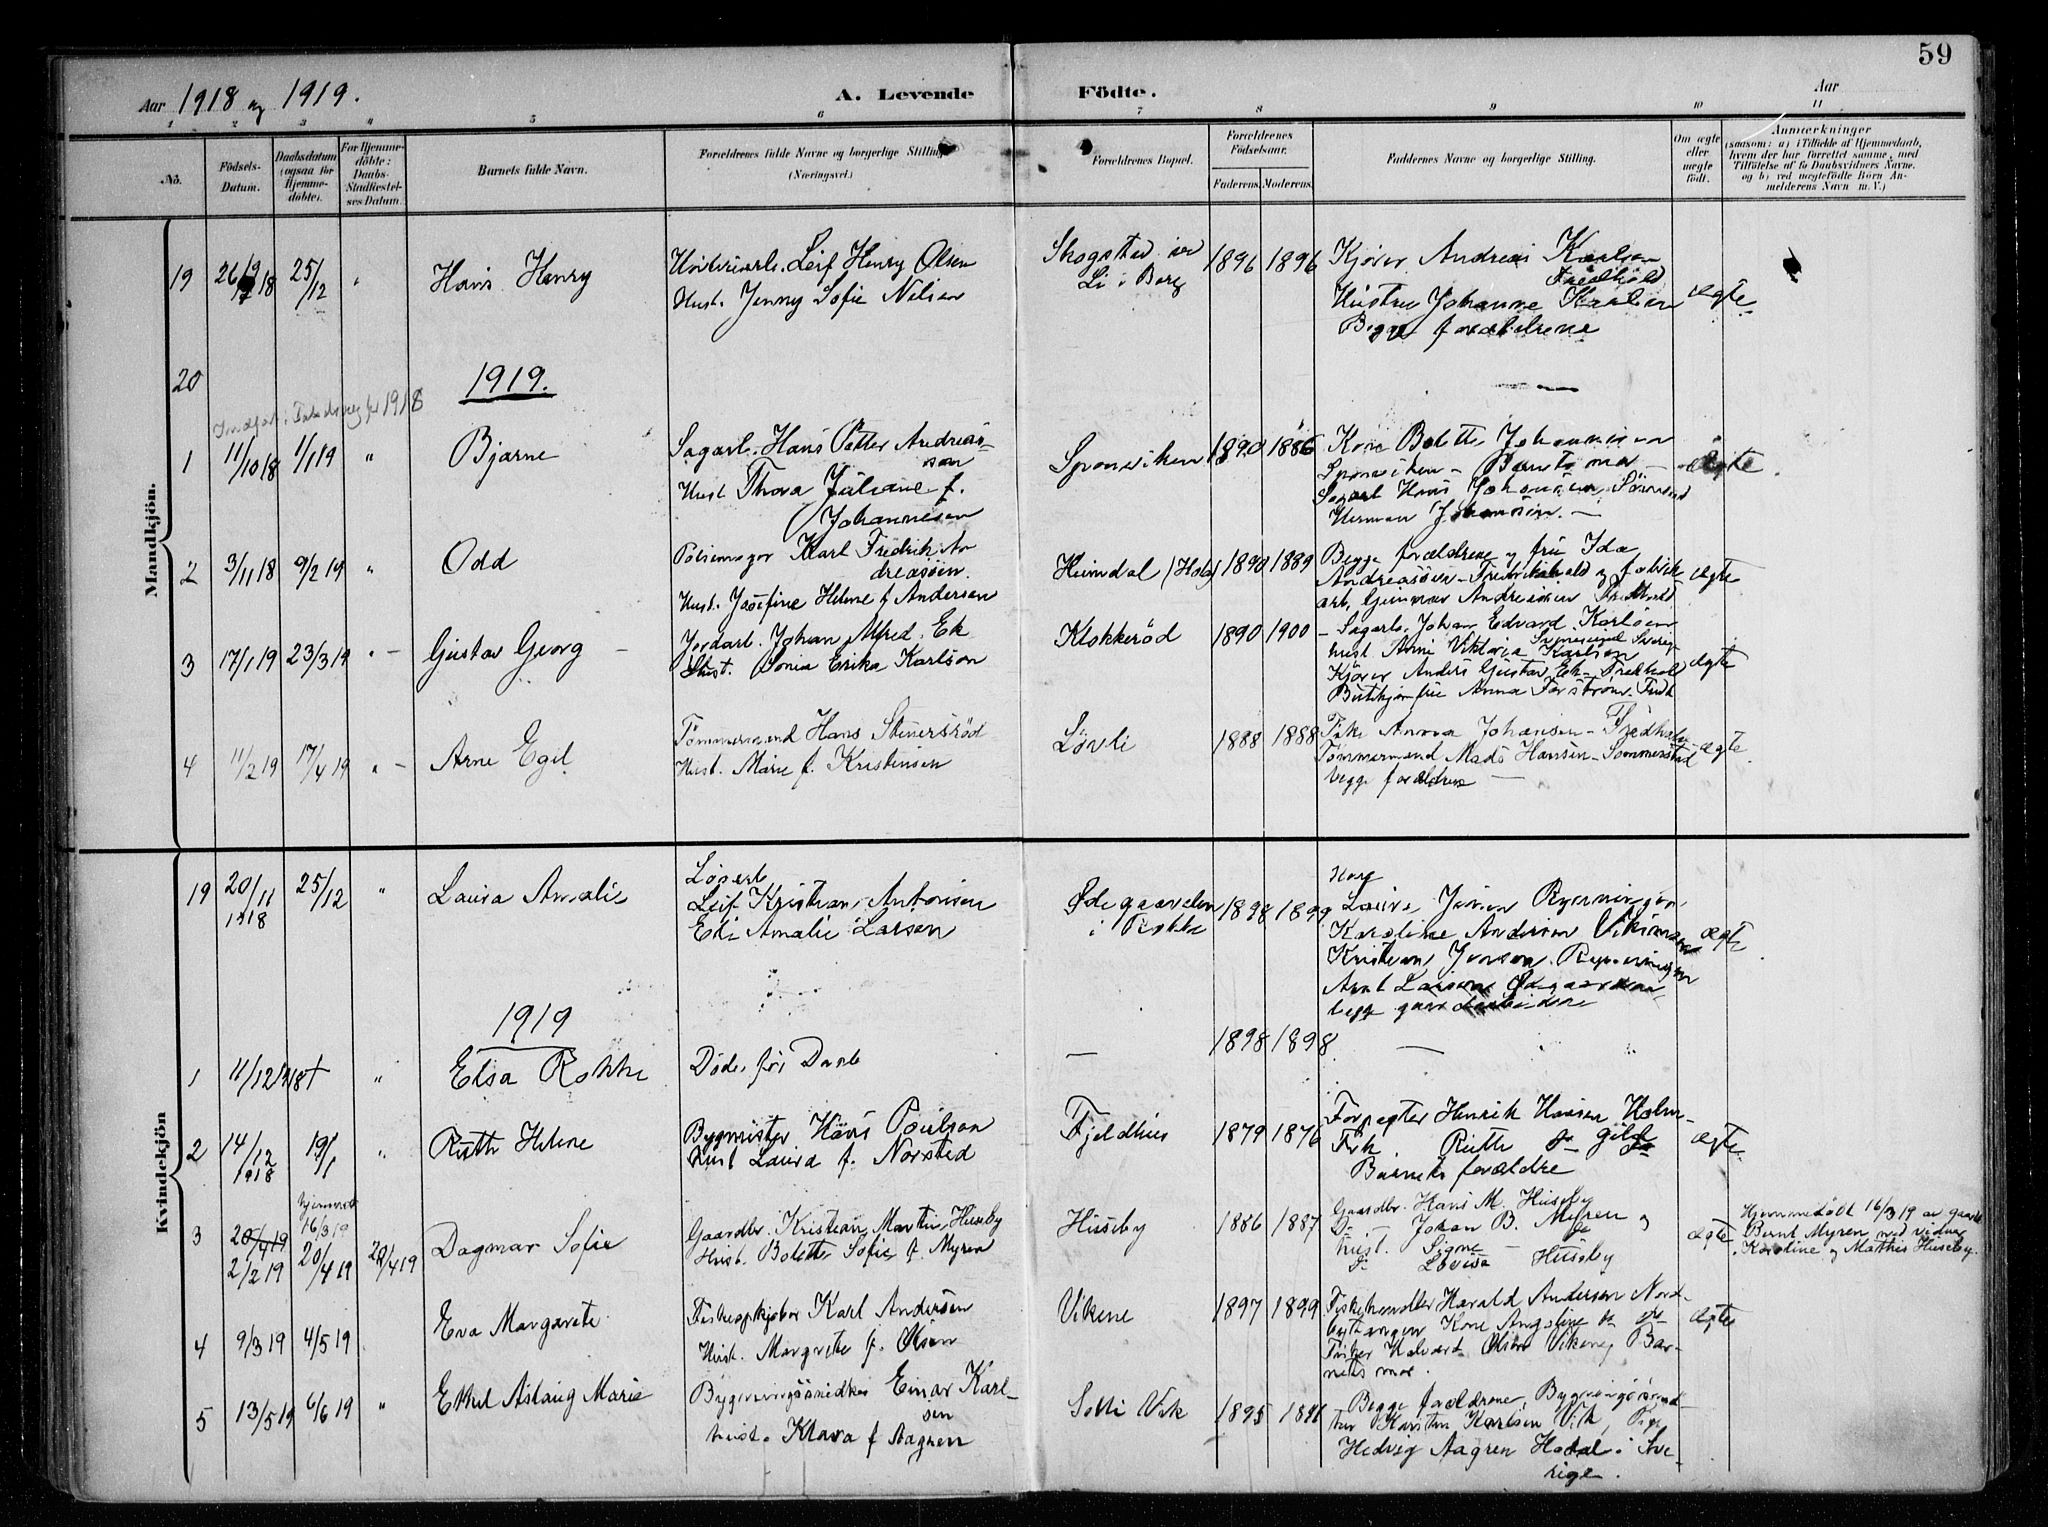 59
Aar 1918 og 1919.
A. Levende Födte.
Aar
1 2 3 4 5 6 7 8 9 10 11
No.
Födsels-
Datum.
Daabsdatum
(ogsaa for
Hjemme-
döbte).
For Hjemme-
döbte:
Daabs-
Stadfæstel-
ses Datum.
Barnets fulde Navn.
Forældrenes fulde Navne og borgerlige Stilling
(Næringsvei.)
Forældrenes Bopæl.
Forældrenes
Födselsaar.
Faderens. Moderens.
Faddernes Navne og borgerlige Stilling.
Om ægte
eller
uægte
födt.
Anmærkninger
(saasom: a) i Tilfælde af Hjemmedaab,
hvem der har forrettet samme, med
Tilföielse af to Daabsvidners Navne.
og b) ved uægtefödte Börn An-
melderens Navn m. V.)
Mandkjön.
19 26/9 18 25/12 " Hans Henry
Leif Henry Olsen
Hust. Jenny Sofie Nilsen
Skogsted
Li i Berg
1896 1896
Kjører Andreas Karlsen
Fredhald
Hustru Johanne Karlsen
Begge forældrene
ægte
20
1919.
1918
1 11/10 18 1/1 19 " Bjarne
Sagarb. Hans Petter Andreas-
sen
Hust Thora Juliane f.
Johannesen
Sponviken
1890 1886
Kone Bolette Johannesen
Sponviken - Barnets mor -
Sagarb Hans Johansen
Herman Johansen. -
ægte
2 3/11 18 9/2 19 " Odd
Karl Fredrik An
dreasøen.
Hust. Josefine Helene f Andersen
Heimdal (Hold)
1890 1889
Begge forældrene og frk Ida
Andreasøen - Fredrikshald og fabrik
arb. Gunnar Andresen Fredhald
ægte
3 17/1 19 23/3 19 " - Gustav Georg -
Jordarb. Johan Alfred Ek
Hust. Sonia Erika Karlson
Klokkerød
1890 1900
- Sagarb. Johan Edvard Karlsen
hust Anni Viktoria Karlsen
Kjører Anders Gustav Ek - Fredhald
Anna Forstrøm Fredh
ægte
4 11/2 19 17/4 19 " - Arne Egil
Tømmermand Hans Stenersrød
Hust. Marie f. Kristensen
Løvli
1888 1888
Frk. Anna Johansen - Fredhald
Tømmermand Mads Hansen - Sommersted
begge forældrene -
ægte
Kvindekjön
19 20/11 1918 25/12 " Laura Amalie
Løsarb
Leif Kristian Antonsen
Eli Amalie Larsen
Ødegaarden
i Rokke
1898 1899
Laura Jensen Rypningen
Karoline Andersen Vikimoen
Kristian Jensen Rypningen
Arnt Larsen Ødegaarden
begge gaardarbeidere
ægte
1919
1 11/12 1918 + " Elsa Rokke
Døde før Daab
-
1898 1898
-
2 14/12 1918 19/1 " Ruth Helene
Bygmester Hans Poulsen
Hust Laura f. Norsted
Fjeldhus
1879 1876
Forpagter Henrik Hansen Holm-
Frk Ruth do gild
Barnets forældre
ægte
3 20/4 19 2/2 19
hjemmed
16/3 19
20/4 19
20/4 19 Dagmar Sofie
Gaardbr. Kristian Martin Huseby
Hust. Bolette Sofie f. Myren
Huseby
1886 1887
Gaardbr. Hans M. Huseby
Do - Johan B. Myren og
hust. Signe - do
do Lovisa Huseby
ægte
Hjemmedøbt 16/3 19 av gaardb
Bernt Myren med vidner
Karoline og Mathis Huseby.
4 9/3 19 4/5 19 Eva Margarete
Fiskeopkjøber Karl Andersen
Hust. Margrete f. Olsen
Vikene
1897 1899
Fiskehandler Harald Andersen Nord-
bytangen Kone Angeline do do
Fisker Halvard Olsen Vikene Bar-
nets mor.
ægte
5 13/5 19 6/6 19 " Ethel Aslaug Marie
Bygningssnedker Einar Karl-
sen
hust. Klara f Aagren
Solli Vik
1895 1896
Begge forældrene, Bygningssned-
ker Karsten Karlsen Vik, Pige
Hedvig Aagren Hodal i Sve-
rige.